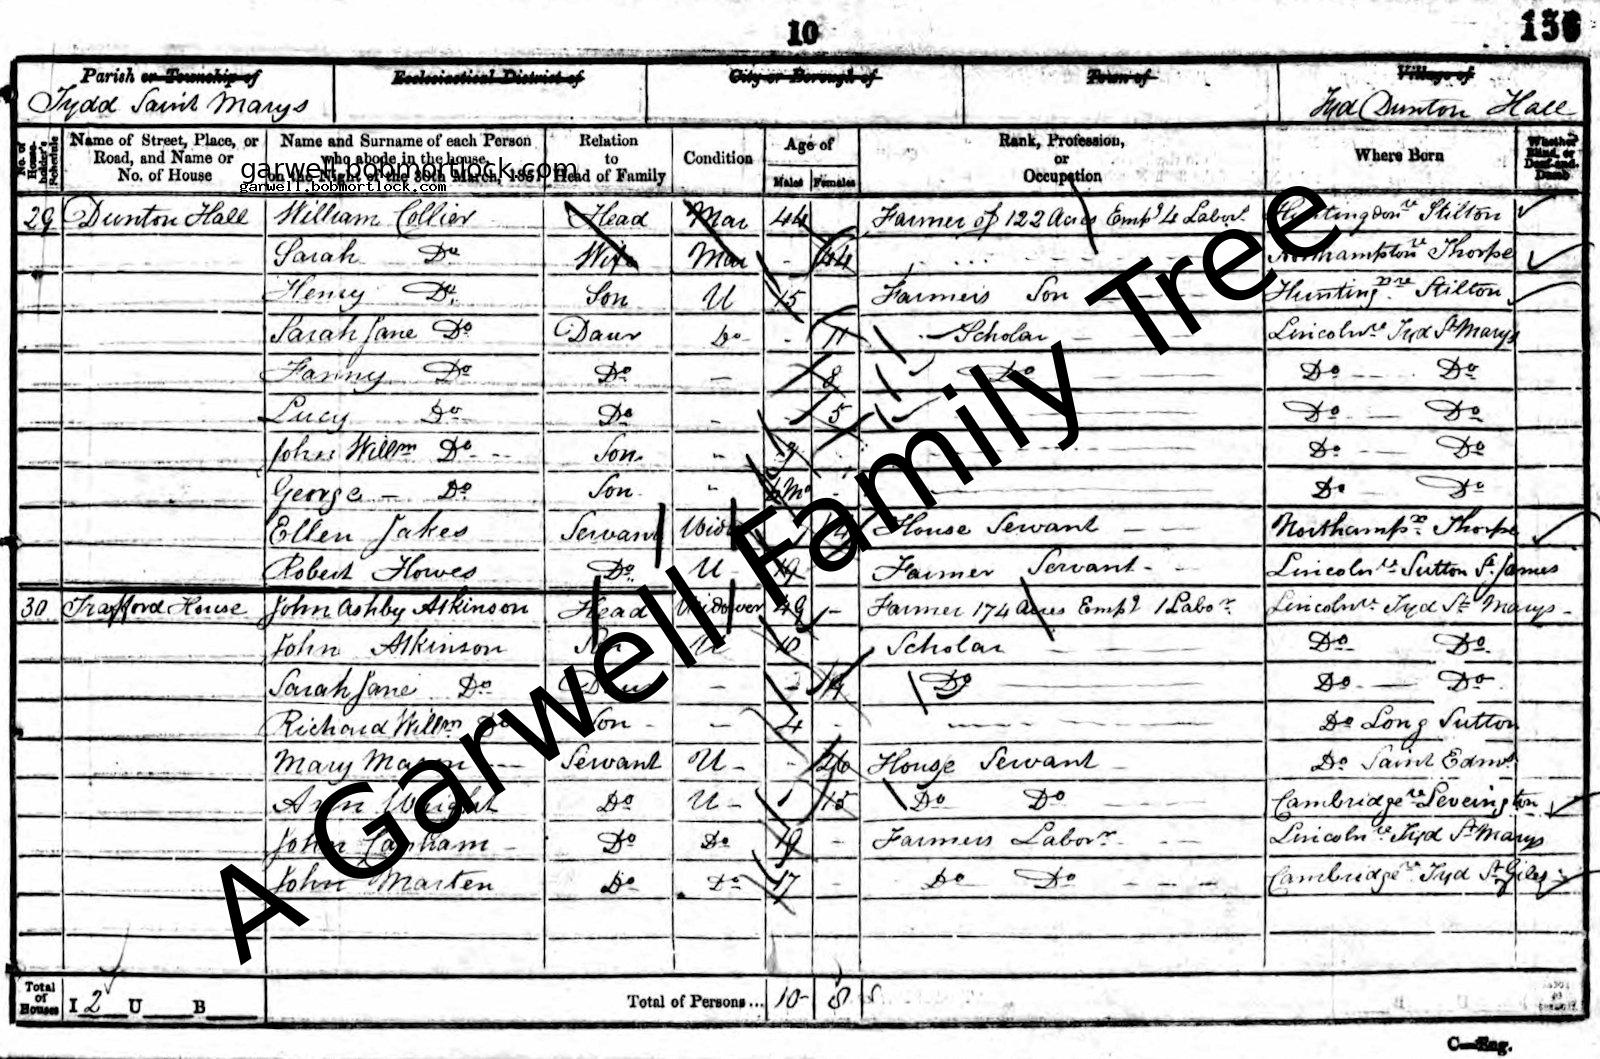 10
136
Parish or Township of Ecclesiastical District of City or Borough of Town of Village of
Tydd Saint Marys Tyd Dunton Hall
No. of House-holder's Schedule
Name of Street, Place, or Road, and Name or No. of House
Name and Surname of each Person who abode in the house, on the Night of the 30th March, 1851
Relation to Head of Family
Condition
Age of
Males Females
Rank, Profession, or Occupation
Where Born
Whether Blind, or Deaf-and-Dumb
garwell.bobmortlock.com
garwell.bobmortlock.com
29 Dunton Hall William Collier Head Mar 44 Farmer of 122 Acres Empd 4 Labors Huntingdonre Stilton
Sarah Do Wife Mar - 44 Northamptonre Thorpe
Henry Do Son U 15 Farmers Son Huntingnre Stilton
Sarah Jane Do Daur Do - 11 Scholar Lincolnre Tyd St Marys
Fanny Do Do - 8 Do Do Do
Lucy Do Do - 5 Do Do
John Willm Do Son Do Do
George - Do Son Mo Do Do
Ellen Jakes Servant House Servant Northampre Thorpe
Robert Howes Do U 19 Farmer Servant Lincolnre Sutton St James
30 Trafford House John Ashby Atkinson Head Widower 49 - Farmer 174 Acres Empg 1 Labor Lincolnre Tyd St Marys
John Atkinson Son U 10 Scholar Do Do
Sarah Jane Do Daur - - Do Do Do
Richard Willm Do Son - 4 - Do Long Sutton
Mary Mason Servant U - - 26 House Servant Do Saint Edmds
Ann Wright Do U - - 15 Do Do Cambridgere Leverington
John Lapham Do Do 19 - Farmers Labor Lincolnre Tyd St Marys
John Marten Do Do 17 - Do Do Cambridgere Tyd St Giles
A Garwell Family Tree
Total of Houses I 2 U B Total of Persons... 10 8
C—Eng.